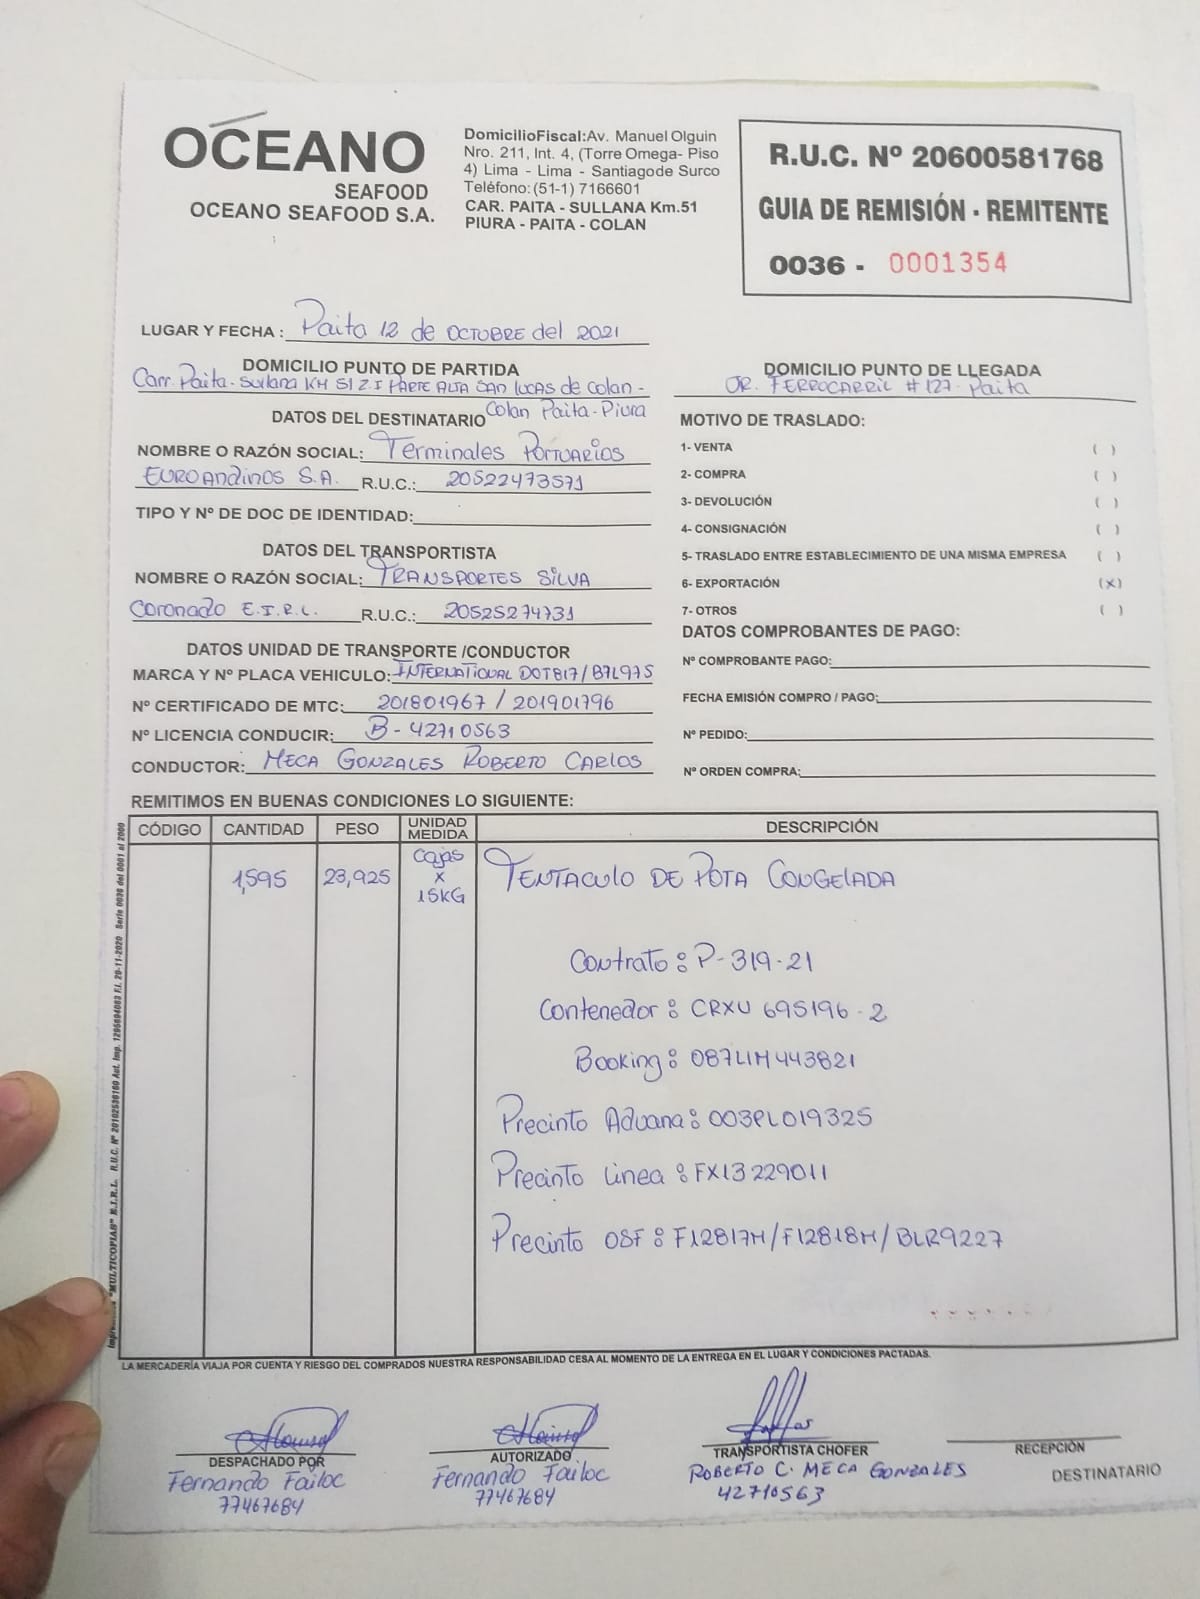 OCEANO
SEAFOOD
OCEANO SEAFOOD S.A.
DomicilioFiscal:Av. Manuel Olguin
Nro. 211, Int. 4, (Torre Omega- Piso
4) Lima - Lima - Santiagode Surco
Teléfono:(51-1) 7166601
CAR. PAITA - SULLANA Km.51
PIURA - PAITA - COLAN
R.U.C. Nº 20600581768
GUIA DE REMISIÓN - REMITENTE
0036 - 0001354
LUGAR Y FECHA : Paita 12 de OCTUBRE del 2021
DOMICILIO PUNTO DE PARTIDA
Carr. Paita-Sullana KM 51 Z.I PARTE ALTA SAN LUCAS de Colan -
Colan Paita-Piura
DOMICILIO PUNTO DE LLEGADA
JR. FERROCARRIL # 127- Paita
DATOS DEL DESTINATARIO
NOMBRE O RAZÓN SOCIAL: Terminales Portuarios
EUROAndinos S.A. R.U.C.: 20522473571
TIPO Y Nº DE DOC DE IDENTIDAD:
DATOS DEL TRANSPORTISTA
NOMBRE O RAZÓN SOCIAL: TRANSPORTES SILVA
Coronado E.I.R.L. R.U.C.: 20525274731
DATOS UNIDAD DE TRANSPORTE /CONDUCTOR
MARCA Y Nº PLACA VEHICULO: INTERNATIONAL D0T817/B7L975
Nº CERTIFICADO DE MTC: 201801967 / 201901796
Nº LICENCIA CONDUCIR: B-42710563
CONDUCTOR: MECA GONZALES ROBERTO CARLOS
MOTIVO DE TRASLADO:
1- VENTA ( )
2- COMPRA ( )
3- DEVOLUCIÓN ( )
4- CONSIGNACIÓN ( )
5- TRASLADO ENTRE ESTABLECIMIENTO DE UNA MISMA EMPRESA ( )
6- EXPORTACIÓN (X)
7- OTROS ( )
DATOS COMPROBANTES DE PAGO:
Nº COMPROBANTE PAGO:
FECHA EMISIÓN COMPRO / PAGO:
Nº PEDIDO:
Nº ORDEN COMPRA:
REMITIMOS EN BUENAS CONDICIONES LO SIGUIENTE:
CÓDIGO CANTIDAD PESO UNIDAD MEDIDA DESCRIPCIÓN
1,595 23,925 Cajas x 15KG TENTACULO DE POTA CONGELADA
Contrato: P-319-21
Contenedor: CRXU 695196-2
Booking: 087LIM443821
Precinto Aduana: 003PL019325
Precinto Linea: FX13229011
Precinto OSF: F12817M/F12818M/BLR9227
"MULTICOPIAS" E.I.R.L. R.U.C. Nº 20102536160 Aut. Imp. 1295694083 F.I. 20-11-2020 Serie 0036 del 0001 al 2000
LA MERCADERÍA VIAJA POR CUENTA Y RIESGO DEL COMPRADOS NUESTRA RESPONSABILIDAD CESA AL MOMENTO DE LA ENTREGA EN EL LUGAR Y CONDICIONES PACTADAS.
DESPACHADO POR
Fernando Failoc
77467684
AUTORIZADO
Fernando Failoc
77467684
TRANSPORTISTA CHOFER
ROBERTO C. MECA GONZALES
42710563
RECEPCIÓN
DESTINATARIO